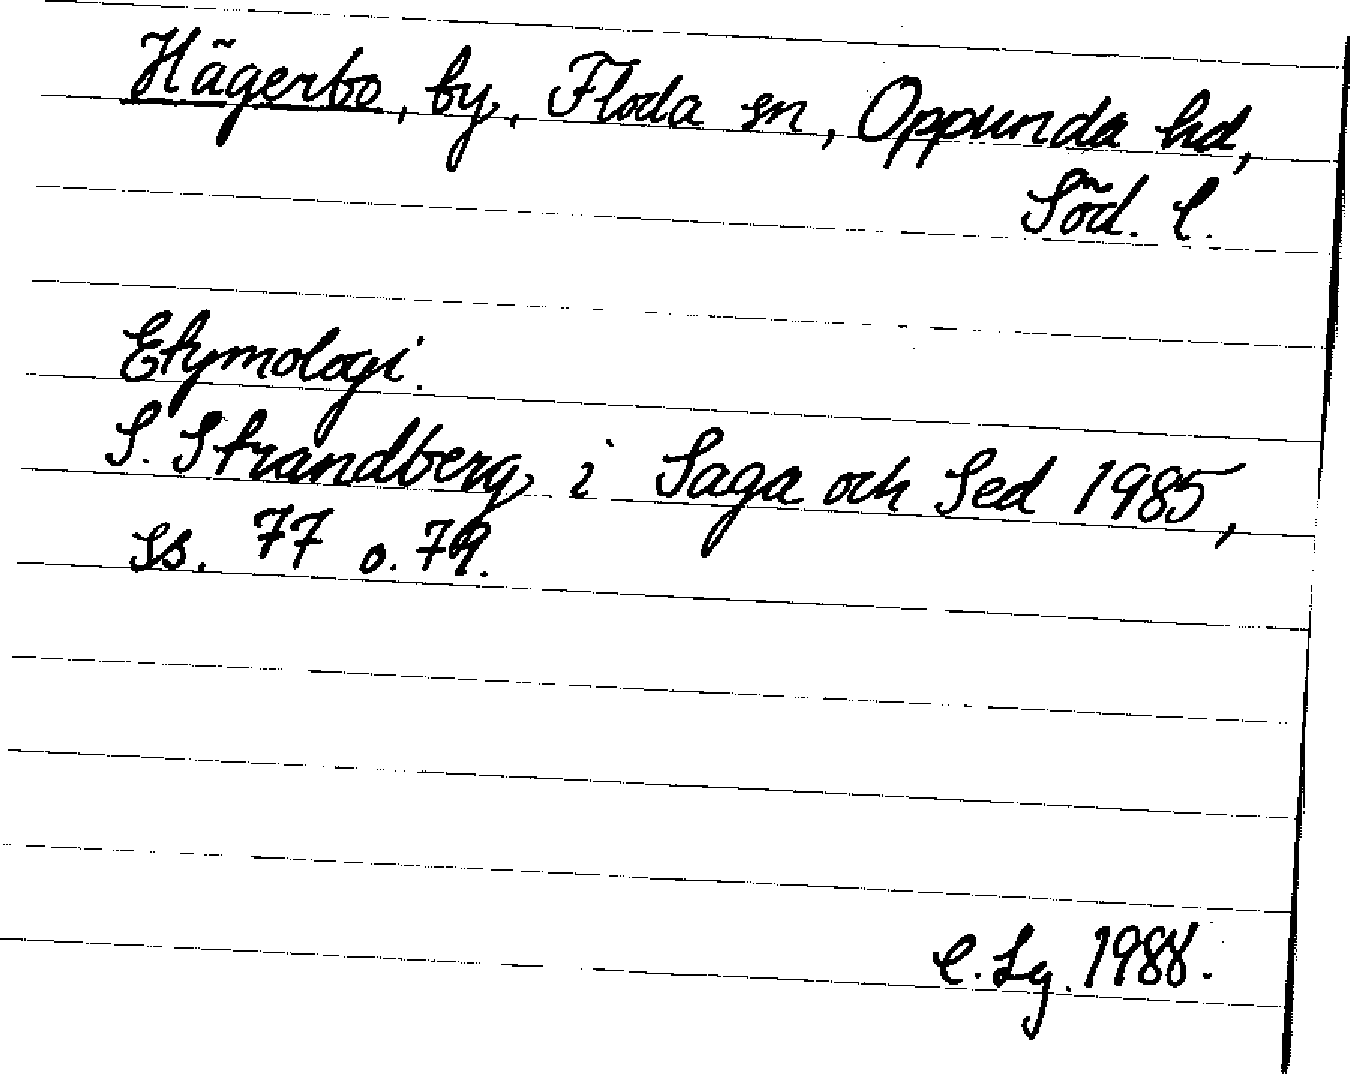 Hägerbo, by, Floda sn, Oppunda hd,
Söd. l.
Etymologi.
S. Strandberg i Saga och Sed 1985,
ss. 77 o. 79.
C. Lg. 1988.